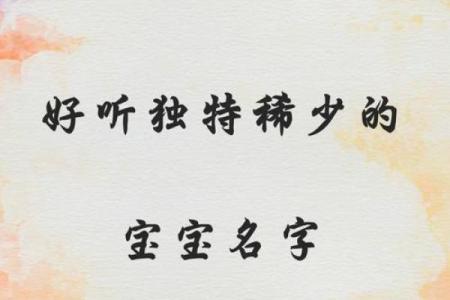 好听独特稀少的
宝宝名字